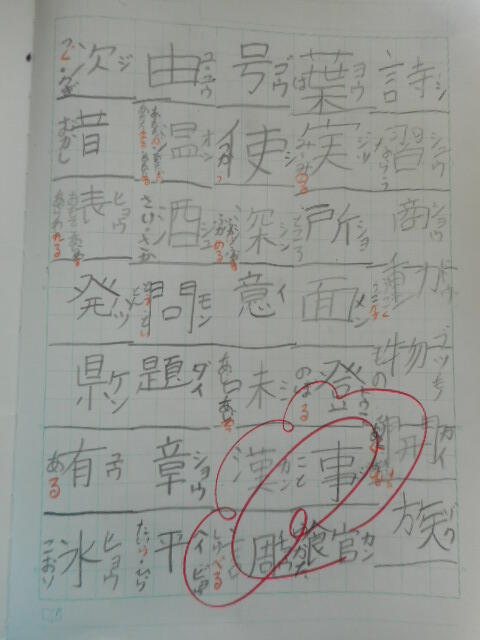 詩 シ
習 シュウ なら・う
商 ショウ
動 ドウ
物 ブツ もの
開 カイ
族 ゾク
葉 ヨウ は
実 ジツ み・みのる
所 ショ ところ
面 メン
登 ト のぼる
事 ジ こと
館 官 カン
号 ゴウ
使 シ つかう
深 シン ふかめる
意 イ
味 ミ あじ・あじわう
漢 カン
調 しらべる
由 ユ・ユウ
温 オン
酒 シュ さけ・さか
問 モン
題 ダイ
章 ショウ
平 ヘイ・ビョウ たいら・ひら
次 ジ つぎ
昔 むかし
表 ヒョウ あらわれる
発 ハツ
県 ケン
有 ユウ ある
氷 ヒョウ こおり